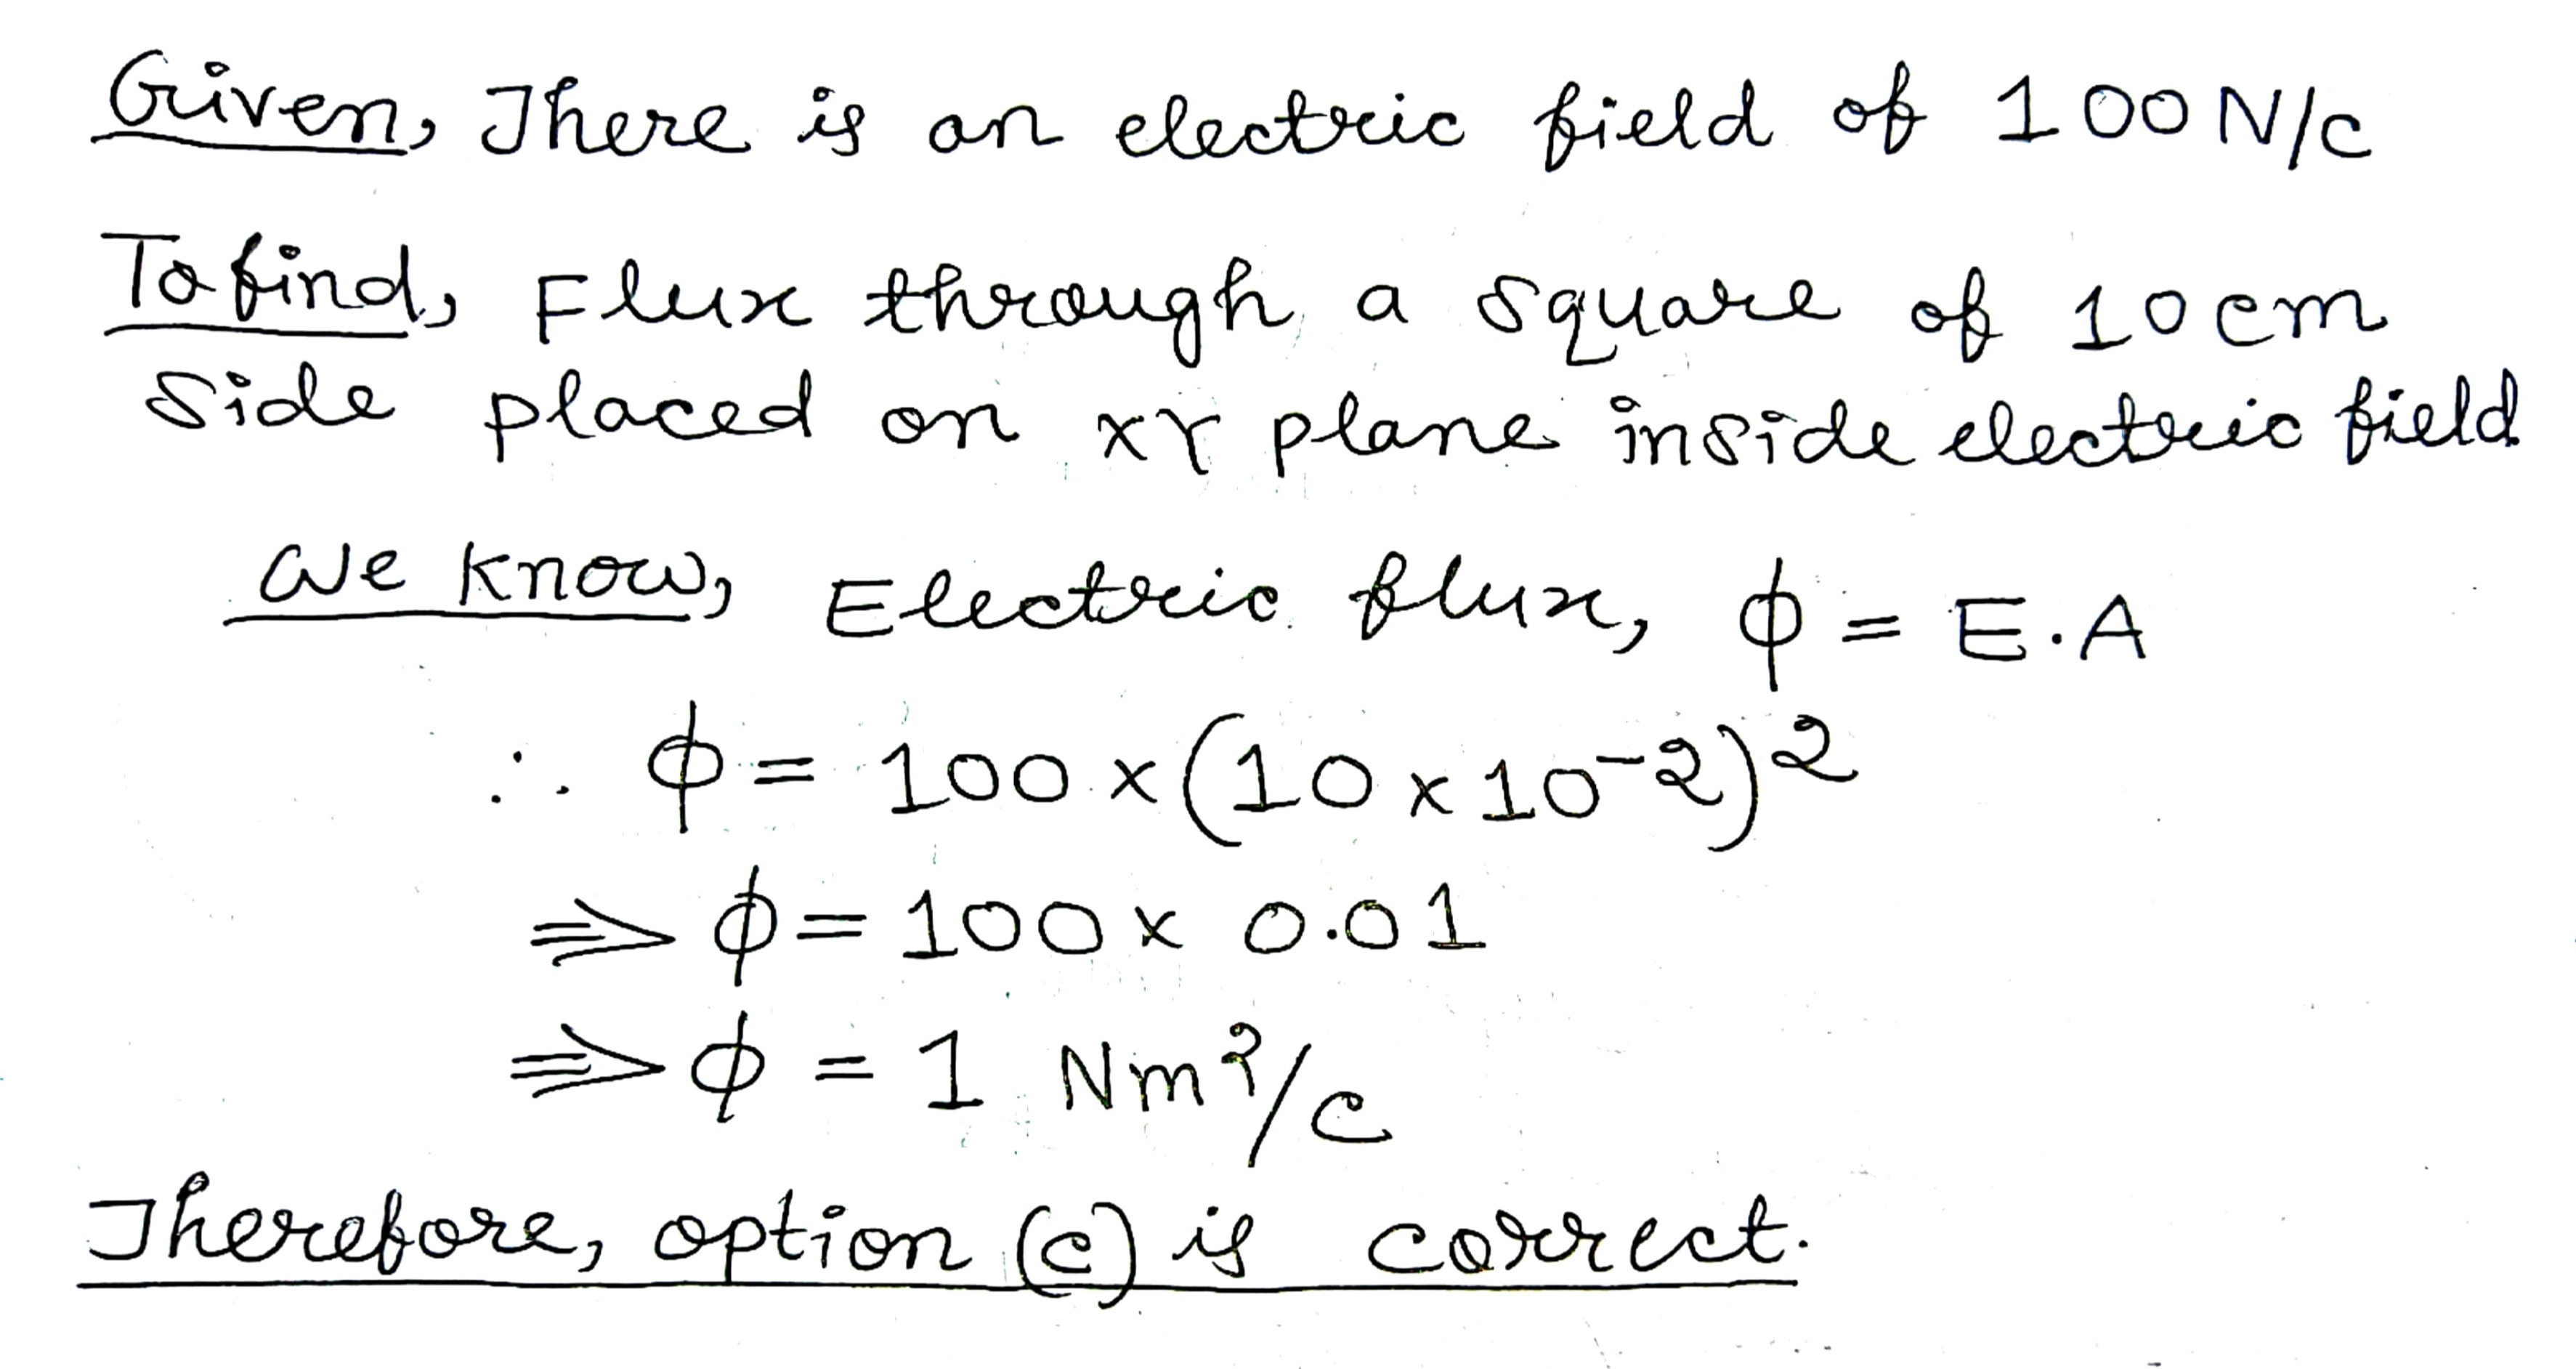 Given, There is an electric field of 100 N/C
To find, Flux through a square of 10 cm
side placed on XY plane inside electric field
We know, Electric flux, ϕ = E.A
∴ ϕ = 100 × (10 × 10⁻²)²
⇒ ϕ = 100 × 0.01
⇒ ϕ = 1 Nm²/C
Therefore, option (c) is correct.